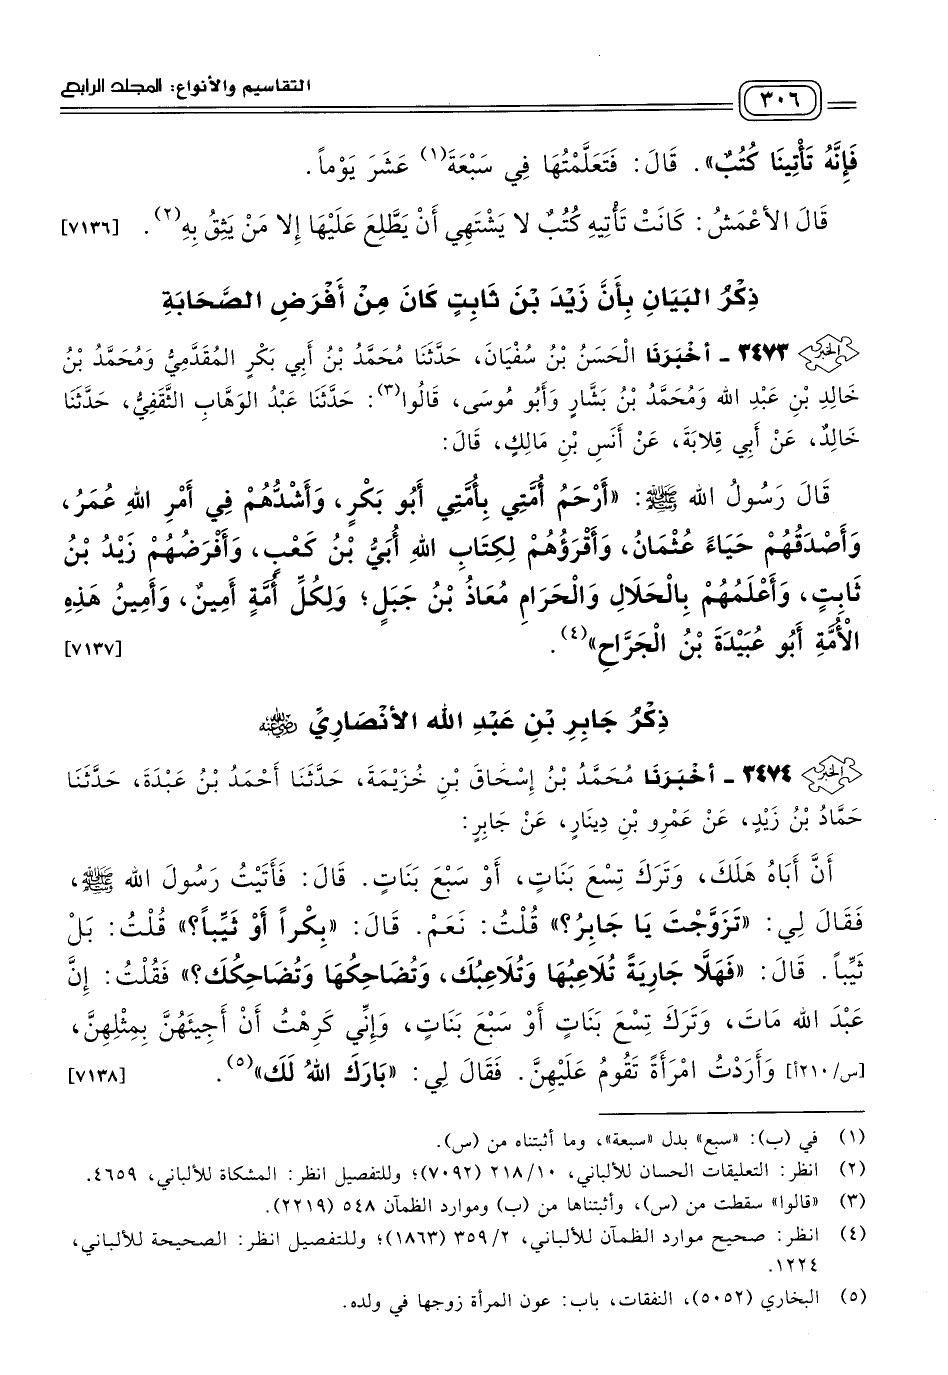 التقاسيم والأنواع: المجلد الرابع
٣٠٦
فَإِنَّهُ تَأْتِينَا كُتُبٌ». قَالَ: فَتَعَلَّمْتُهَا فِي سَبْعَةَ(١) عَشَرَ يَوْماً.
قَالَ الأَعْمَشُ: كَانَتْ تَأْتِيهِ كُتُبٌ لا يَشْتَهِي أَنْ يَطَّلِعَ عَلَيْهَا إِلا مَنْ يَثِقُ بِهِ(٢). [٧١٣٦]
ذِكْرُ البَيَانِ بِأَنَّ زَيْدَ بْنَ ثَابِتٍ كَانَ مِنْ أَفْرَضِ الصَّحَابَةِ
الخبر ٣٤٧٣ - أخْبَرَنَا الْحَسَنُ بْنُ سُفْيَانَ، حَدَّثَنَا مُحَمَّدُ بْنُ أَبِي بَكْرٍ المُقَدَّمِيُّ وَمُحَمَّدُ بْنُ
خَالِدِ بْنِ عَبْدِ الله وَمُحَمَّدُ بْنُ بَشَّارٍ وَأَبُو مُوسَى، قَالُوا(٣): حَدَّثَنَا عَبْدُ الوَهَّابِ الثَّقَفِيُّ، حَدَّثَنَا
خَالِدٌ، عَنْ أَبِي قِلابَةَ، عَنْ أَنَسِ بْنِ مَالِكٍ، قَالَ:
قَالَ رَسُولُ الله ﷺ: «أَرْحَمُ أُمَّتِي بِأُمَّتِي أَبُو بَكْرٍ، وَأَشَدُّهُمْ فِي أَمْرِ اللهِ عُمَرُ،
وَأَصْدَقُهُمْ حَيَاءً عُثْمَانُ، وَأَقْرَؤُهُمْ لِكِتَابِ اللهِ أُبَيُّ بْنُ كَعْبٍ، وَأَفْرَضُهُمْ زَيْدُ بْنُ
ثَابِتٍ، وَأَعْلَمُهُمْ بِالْحَلَالِ وَالْحَرَامِ مُعَاذُ بْنُ جَبَلٍ؛ وَلِكُلِّ أُمَّةٍ أَمِينٌ، وَأَمِينُ هَذِهِ
الْأُمَّةِ أَبُو عُبَيْدَةَ بْنُ الْجَرَّاحِ»(٤). [٧١٣٧]
ذِكْرُ جَابِرِ بْنِ عَبْدِ الله الأنْصَارِيِّ رضي الله عنه
الخبر ٣٤٧٤ - أخْبَرَنَا مُحَمَّدُ بْنُ إِسْحَاقَ بْنِ خُزَيْمَةَ، حَدَّثَنَا أَحْمَدُ بْنُ عَبْدَةَ، حَدَّثَنَا
حَمَّادُ بْنُ زَيْدٍ، عَنْ عَمْرِو بْنِ دِينَارٍ، عَنْ جَابِرٍ:
أَنَّ أَبَاهُ هَلَكَ، وَتَرَكَ تِسْعَ بَنَاتٍ، أَوْ سَبْعَ بَنَاتٍ. قَالَ: فَأَتَيْتُ رَسُولَ الله ﷺ،
فَقَالَ لِي: «تَزَوَّجْتَ يَا جَابِرُ؟» قُلْتُ: نَعَمْ. قَالَ: «بِكْراً أَوْ ثَيِّباً؟» قُلْتُ: بَلْ
ثَيِّباً. قَالَ: «فَهَلَّا جَارِيَةً تُلَاعِبُهَا وَتُلَاعِبُكَ، وَتُضَاحِكُهَا وَتُضَاحِكُكَ؟» فَقُلْتُ: إِنَّ
عَبْدَ الله مَاتَ، وَتَرَكَ تِسْعَ بَنَاتٍ أَوْ سَبْعَ بَنَاتٍ، وَإِنِّي كَرِهْتُ أَنْ أَجِيئَهُنَّ بِمِثْلِهِنَّ،
[س/٢١٠أ] وَأَرَدْتُ امْرَأَةً تَقُومُ عَلَيْهِنَّ. فَقَالَ لِي: «بَارَكَ اللهُ لَكَ»(٥). [٧١٣٨]
(١) في (ب): «سبع» بدل «سبعة»، وما أثبتناه من (س).
(٢) انظر: التعليقات الحسان للألباني، ٢١٨/١٠ (٧٠٩٢)؛ وللتفصيل انظر: المشكاة للألباني، ٤٦٥٩.
(٣) «قالوا» سقطت من (س)، وأثبتناها من (ب) وموارد الظمآن ٥٤٨ (٢٢١٩).
(٤) انظر: صحيح موارد الظمآن للألباني، ٣٥٩/٢ (١٨٦٣)؛ وللتفصيل انظر: الصحيحة للألباني،
١٢٢٤.
(٥) البخاري (٥٠٥٢)، النفقات، باب: عون المرأة زوجها في ولده.